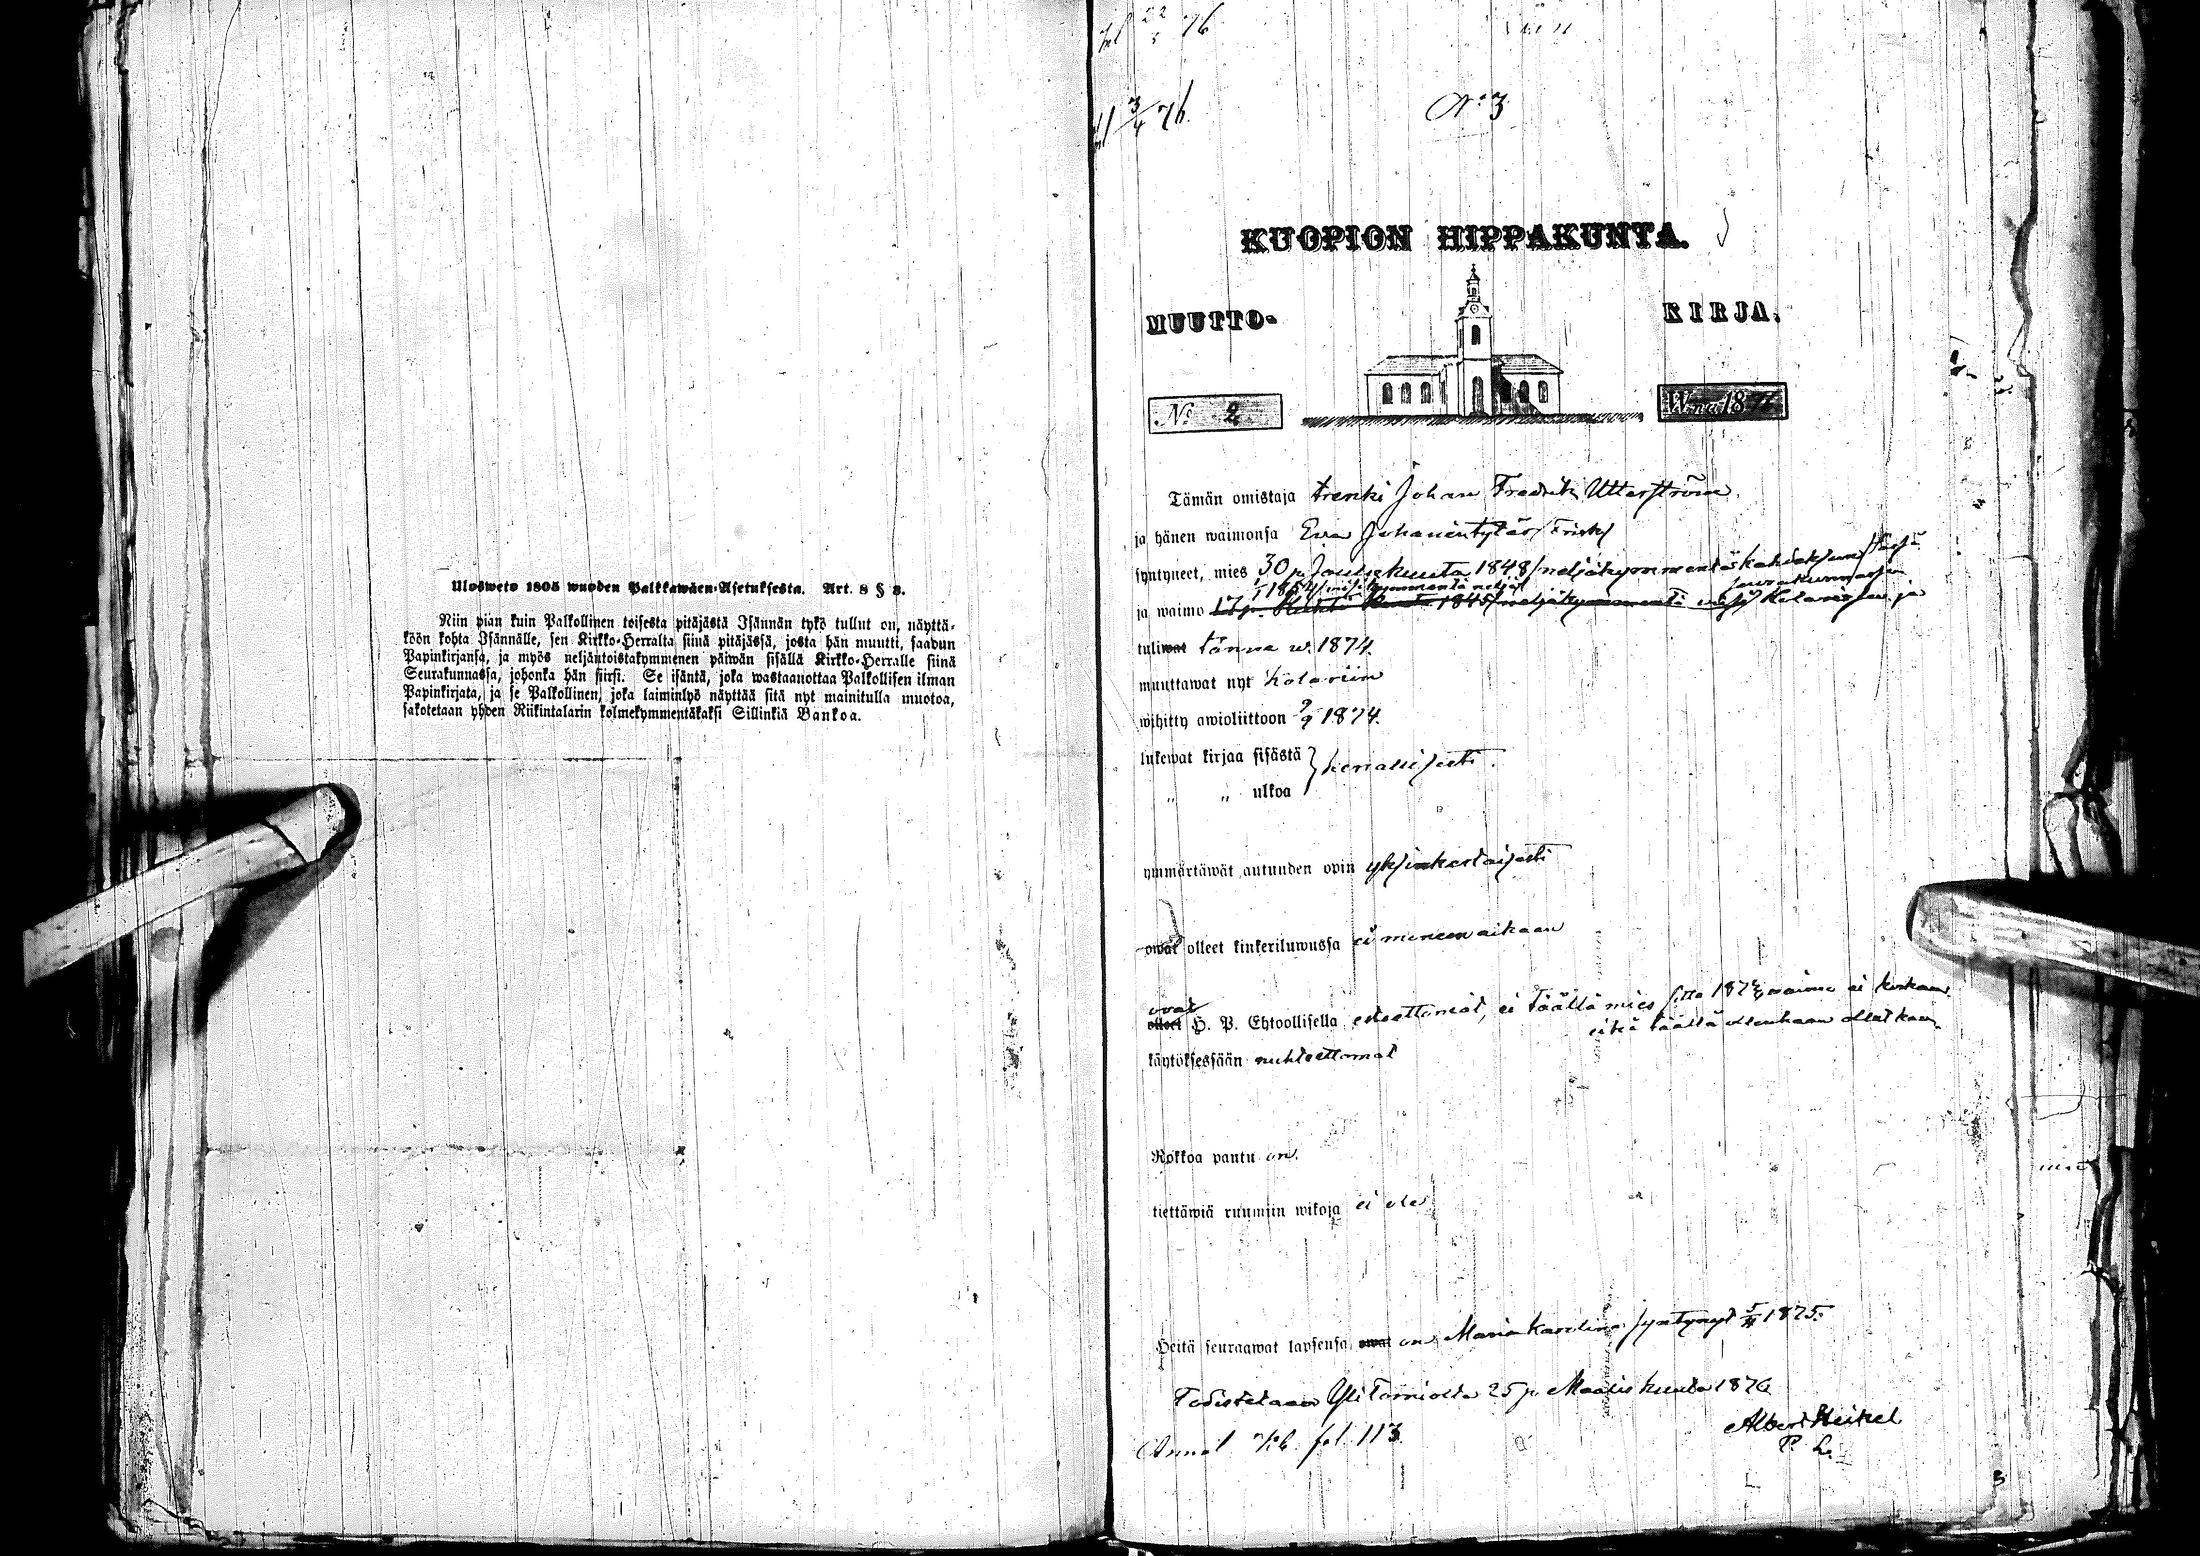 Ulosweto 1805 wuoden Palkkawäen-Asetuksesta. Art. 8 § 3.
Niin pian kuin Palkollinen toisesta pitäjästä Isännän tykö tullut on, näyttä-
köön kohta Isännälle, sen Kirkko-Herralta siinä pitäjässä, josta hän muutti, saadun
Papinkirjansa, ja myös neljäntoistakymmenen päiwän sisällä Kirkko-Herralle siinä
Seurakunnassa, johonka hän siirsi. Se isäntä, joka wastaanottaa Palkollisen ilman
Papinkirjata, ja se Palkollinen, joka laiminlyö näyttää sitä nyt mainitulla muotoa,
sakotetaan yhden Riikintalarin kolmekymmentäkaksi Sillinkiä Bankoa.
22 76
3/4 76.
N:o 3
KUOPION HIPPAKUNTA.
MUUTTO- KIRJA.
No 2 Wna 1876
Tämän omistaja trenki Johan Fredrik Utterström
ja hänen waimonsa Eva Johanintytär /Frisk/
syntyneet, mies 30 p. Joulukuuta 1848 /neljäkymmentäkahdeksan/ tässä
seurakunnassa
ja waimo 17 p. 1845 /neljäkymmentä wiisi/ Kolarissa ja
tuliwat tänne w. 1874.
muuttawat nyt Kolariin
wihitty awioliittoon 1874.
lukewat kirjaa sisästä } kerallisesti.
„ „ ulkoa
ymmärtäwät autuuden opin yksinkertaisesti
owat olleet kinkeriluwussa ei menneen aikaan
ovat
olleet H. P. Ehtoollisella esteettömät, ei täällä mies sitte 187 waimo ei koskaan
eikä täällä ollenkaan ollutkaan
käytöksessään nuhteettomat
Rokkoa pantu on.
tiettäwiä ruumiin wikoja ei ole
Heitä seuraawat lapsensa owat on, Maria Karolina syntynyt 1875.
Todistetaan YliTorniolta 25 p. Maaliskuuta 1876
Albert Heikel
P. L.
Annot fol. 113.
3